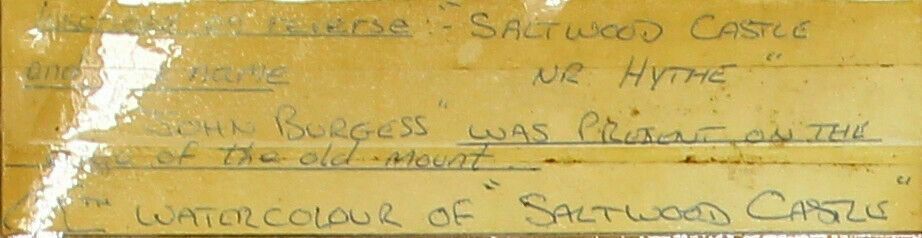 Inscribed on reverse :- "SALTWOOD CASTLE
and the name NR HYTHE"
"JOHN BURGESS" WAS PRESENT ON THE
of the old mount.
WATERCOLOUR OF "SALTWOOD CASTLE"